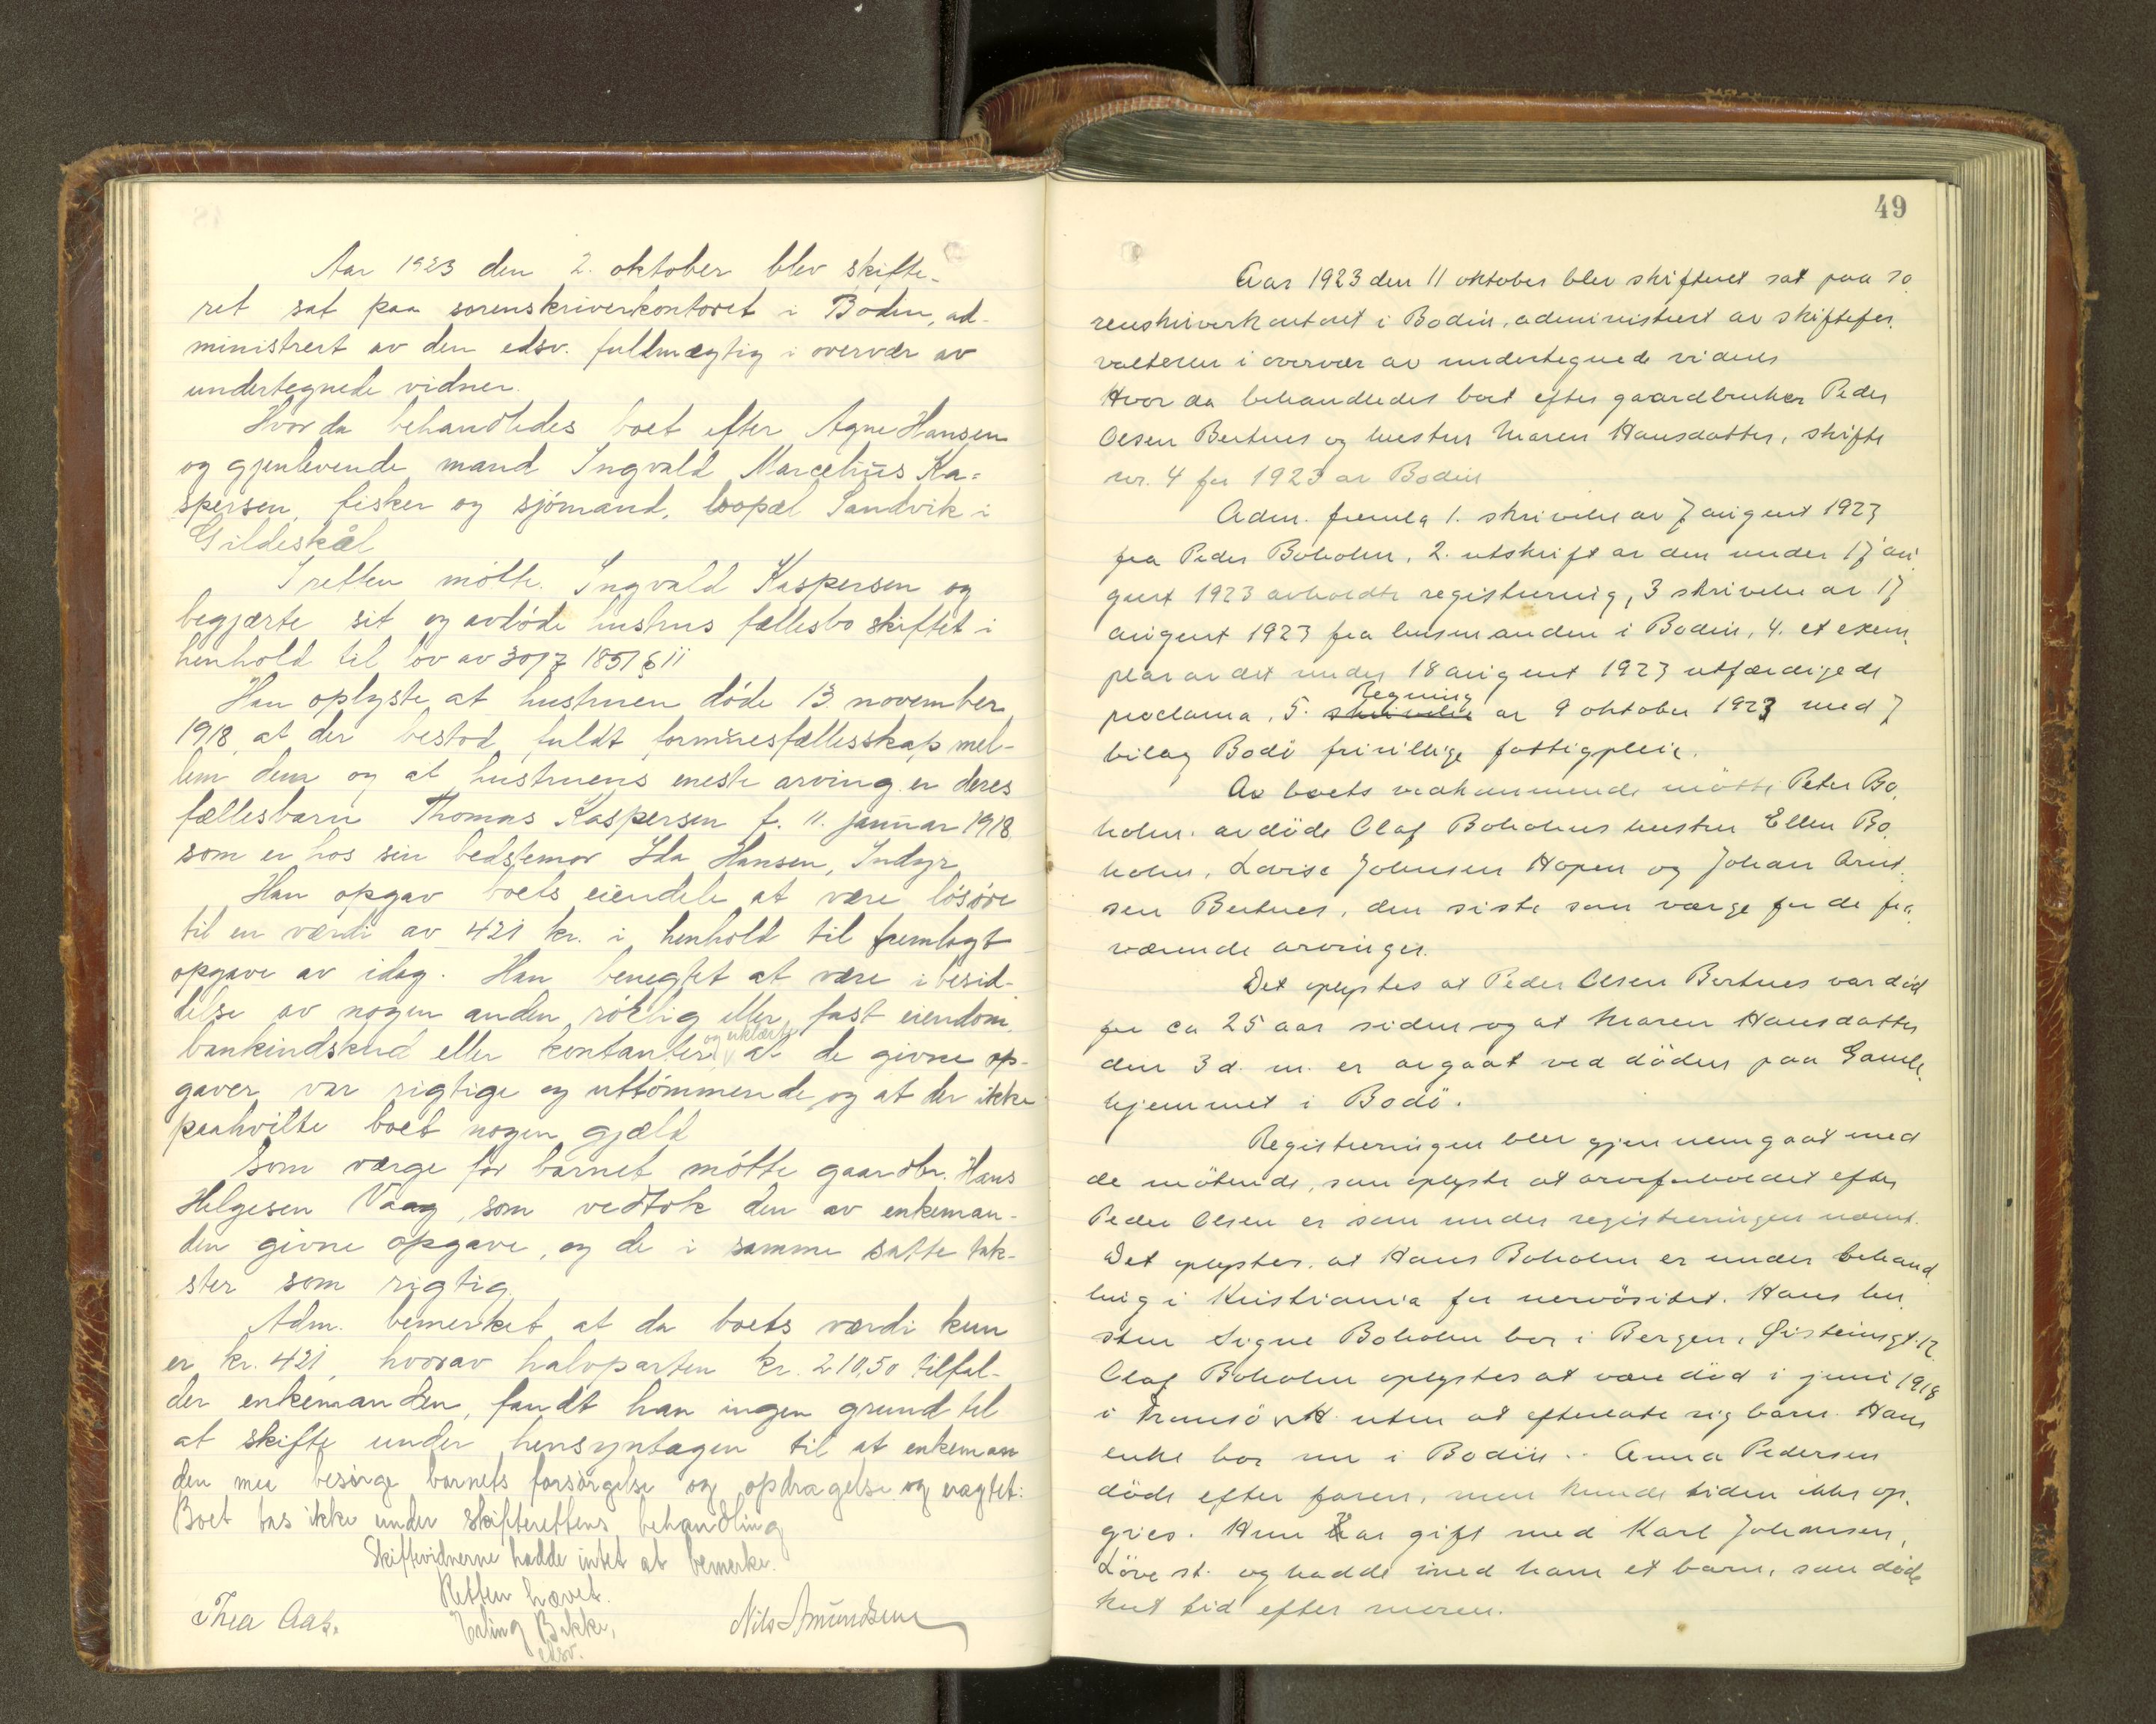 Aar 1923 den 2. oktober blev skifte-
ret sat paa sorenskriverkontoret i Bodin, ad-
ministrert av den edsv. fuldmægtig i overvær av
undertegnede vidner.
Hvor da behandledes boet efter Agne Hansen
og gjenlevende mand Ingvald Marcelius Ka=
spersen, fisker og sjömand, bopæl Sandvik i
Gildeskål
I retten mötte. Ingvald Kaspersen og
begjærte sit og avdöde hustrus fællesbo skiftet i
henhold til lov av 30/7 1851 § 11
Han oplyste at hustruen döde 13. november
1918, at der bestod fuldt formuesfællesskap mel-
lem dem og at hustruens eneste arving er deres
fællesbarn Thomas Kaspersen f. 11. januar 1918
som er hos sin bedstemor Ida Hansen, Indyr
Han opgav boets eiendele at være lösöre
til en værdi av 421 kr. i henhold til fremlagt
opgave av idag. Han benegtet at være i besid-
delse av nogen anden rörlig eller fast eiendom,
bankindskud eller kontanter og erklærte at de givne op-
gaver var rigtige og uttömmende og at der ikke
paahvilte boet nogen gjæld
Som værge for barnet mötte gaardbr. Hans
Helgesen Vaag, som vedtok den av enkeman-
den givne opgave, og de i samme satte tak-
ster som rigtig.
Adm. bemerket at da boets værdi kun
er kr. 421, hvorav halvparten kr. 210,50 tilfal-
der enkemanden, fandt han ingen grund til
at skifte under hensyntagen til at enkeman
den maa besörge barnets forsörgelse og opdragelse og eragtet:
Boet tas ikke under skifterettens behandling
Skiftevidnerne hadde intet at bemerke.
Retten hævet.
Thea Aas. Erling Bakke, Nils Amundsen
edsv.
49
Aar 1923 den 11 oktober blev skifteret sat paa so
renskriverkontoret i Bodin, administrert av skiftefor
valteren i overvær av undertegnede vidner
Hvor da behandledes boet efter gaardbruker Peder
Olsen Bertnes og hustru Maren Hansdatter, skifte
nr. 4 for 1923 av Bodin
Adm. fremla 1. skrivelse av 7 august 1923
fra Peder Boholm, 2. utskrift av den under 17 au
gust 1923 avholdte registrering, 3 skrivelse av 17
august 1923 fra lensmanden i Bodin, 4. et exem
plar av det under 18 august 1923 utfærdigede
proclama, 5. skrivelse Regning av 9 oktober 1923 med 7
bilag Bodö frivillige fattigpleie.
Av boets vedkommende mötte Peter Bo
holm. avdöde Olaf Boholms hustru Ellen Bo
holm, Lovise Johnsen Hopen og Johan Arnt
sen Bertnes, den siste som værge for de fra
værende arvinger.
Det oplystes at Peder Olsen Bertnes var död
for ca 25 aar siden og at Maren Hansdatter
den 3 d. m. er avgaat ved döden paa Gamle
hjemmet i Bodö.
Registreringen blev gjennemgaat med
de mötende, som oplyste at arveforholdet efter
Peder Olsen er som under registreringen nævnt.
Det oplystes, at Hans Boholm er under behand
ling i Kristiania for nervösitet. Hans hu
stru Signe Boholm bor i Bergen, Øisteinsgt. 12
Olaf Boholm oplystes at være död i juni 1918
i Tromsö uten at efterlate sig barn. Hans
enke bor nu i Bodin. Anna Pedersen
döde efter faren, men kunde tiden ikke op
gives. Hun var gift med Karl Johansen,
Löve st. og hadde med ham et barn, som döde
kort tid efter moren.